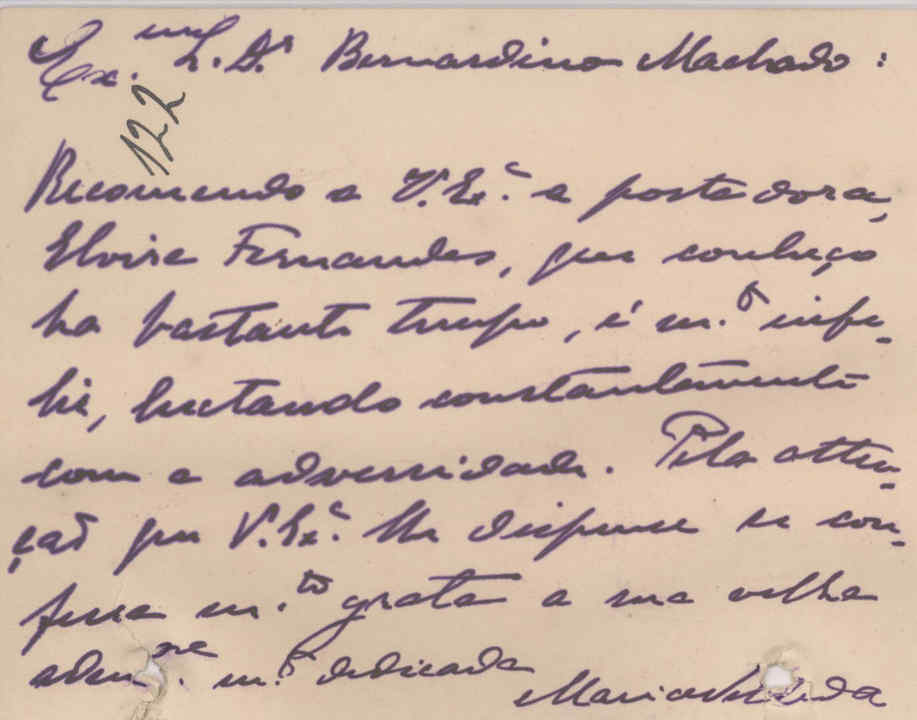 Ex.mo Sr. Dr. Bernardino Machado:
122
Recommendo a V. Ex.ª a portadora,
Elvira Fernandes, que conheço
ha bastante tempo, é m.to infe-
liz, luctando constantemente
com a adversidade. Pela atten-
ção que V. Ex.ª lhe dispense se con-
fessa m.to grata a sua velha
adm.ra m.to dedicada
Maria